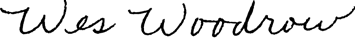 Wes Woodrow